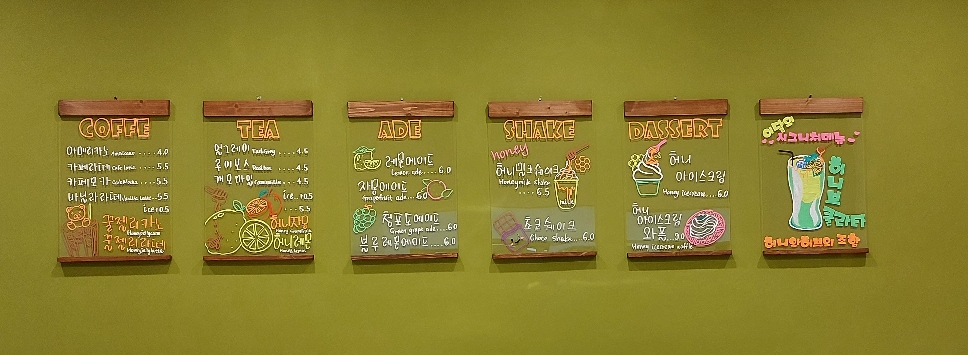 COFFE
아메리카노 Americano ····4.0
카페라떼 Cafe latte ·····5.5
카페모카 Cafe Mocha ·····5.5
바닐라라떼 Vanilla latte ··5.5
ice +0.5
꿀젤리카노
꿀젤리라떼
TEA
얼그레이 ····4.5
루이보스 ····4.5
캐모마일 ····4.5
ice..+0.5
5.5
허니자몽
허니레몬
ADE
레몬에이드
Lemon ade.....6.0
자몽에이드
Grapefruit ade....6.0
청포도에이드
Green grape ade...6.0
블루레몬에이드....6.0
SHAKE
honey
허니밀크쉐이크
Honeymilk Shake
····6.5
milk
초코쉐이크
Choco shake... 6.0
DASSERT
허니
아이스크림
Honey icecream... 6.0
허니
아이스크림
와플 9.0
Honey icecream waffle
시그니처메뉴
허니브
콜라타
허니와허브의 조합